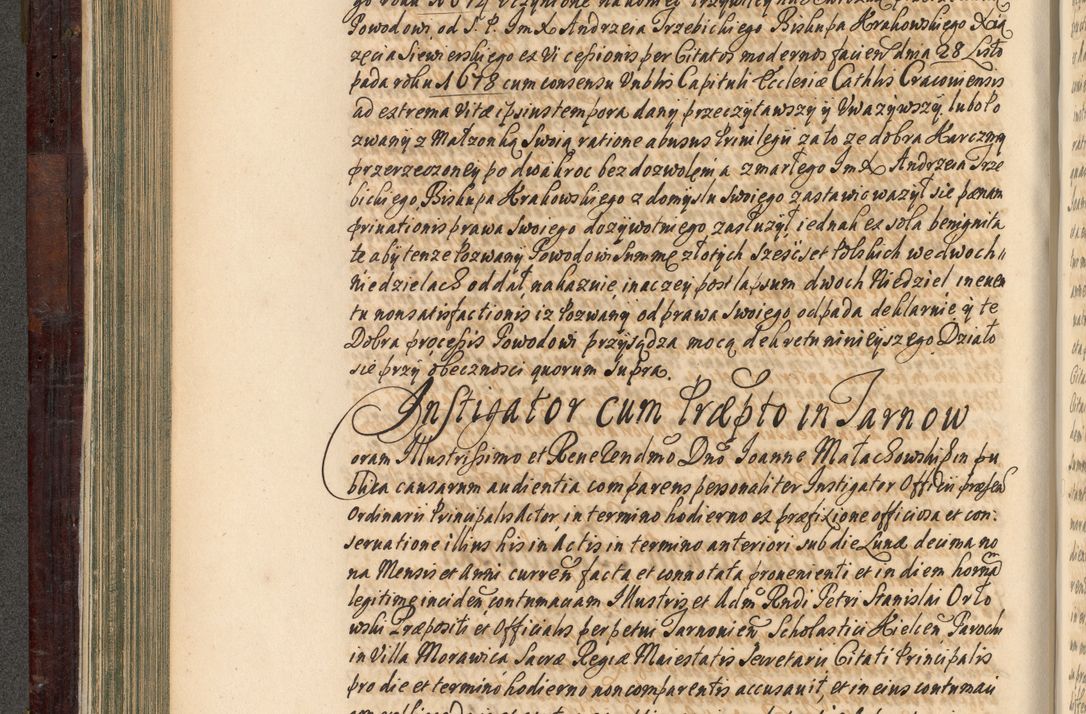 Powodowi od S. P. Jm X Andrzeia Trzebickiego Biskupa Krakowskiego Xią
zęcia Siewierskiego ex vi cessionis per Citatos modernos facien dnia 28 Listo
pada roku 1678 cum consensu Vnbhis Capituli Ecclesiæ Cathlis Cracouiensis
ad extrema vitæ ipsius tempora dany przeczytawszy y Vwazywszy lubo Po
zwany z Małzonką Swoią ratione abusus Priuilegii za to ze dobra Karczmy
przerzeczoney po dwakroc bez dozwolenia zmarłego Jm X Andrzeia Trze
bickiego Biskupa Krakowskiego z domysłu Swoiego zastawic wazył się pænam
priuationis prawa Swoiego dozywotniego zasłuzył iednak ex sola benignita
te aby tenze Pozwany Powodowi Summę złotych szescset Polskich we dwoch
Niedzielach oddał, nakazuie, inaczey post lapsum dwoch Niedziel in euen
tu non satisfactionis iz Pozwany od prawa Swoiego odpada deklaruie y te
Dobra processis Powodowi przysądza mocą dekretu ninieyszego. Działo
się przy obecznosci quorum supra.
Instigator cum Præpto in Tarnow
oram Illustrissimo et Reuerendmo Dno Joanne Małachowski Epin pu
blica causarum audientia comparens personaliter Instigator Officii præsen
Ordinarii Principalis Actor in termino hodierno ex præfixione officiosa et con:
seruatione illius his in Actis in termino anteriori sub die Lunæ decima no
na Mensis et Anni curren facta et connotata prouenienti et in diem horna
legitime inciden contumaciam Illustris et Adm Rndi Petri Stanislai Orło
wski Præpositi et Officialis perpetui Tarnouien Scholastici Kielcen Parochi
in Villa Morawica Sacræ Regiæ Maiestatis Secretarii Citati Principalis
pro die et termino hodierno non comparentis accusauit, et in eius contumaci